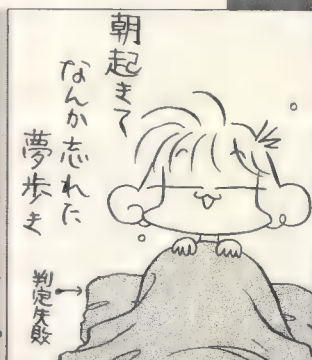 朝起きて
なんか忘れた
夢歩き
判定失敗